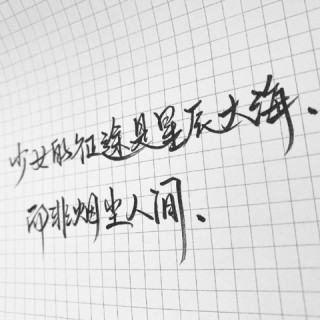 少女的征途是星辰大海、
而非烟尘人间、